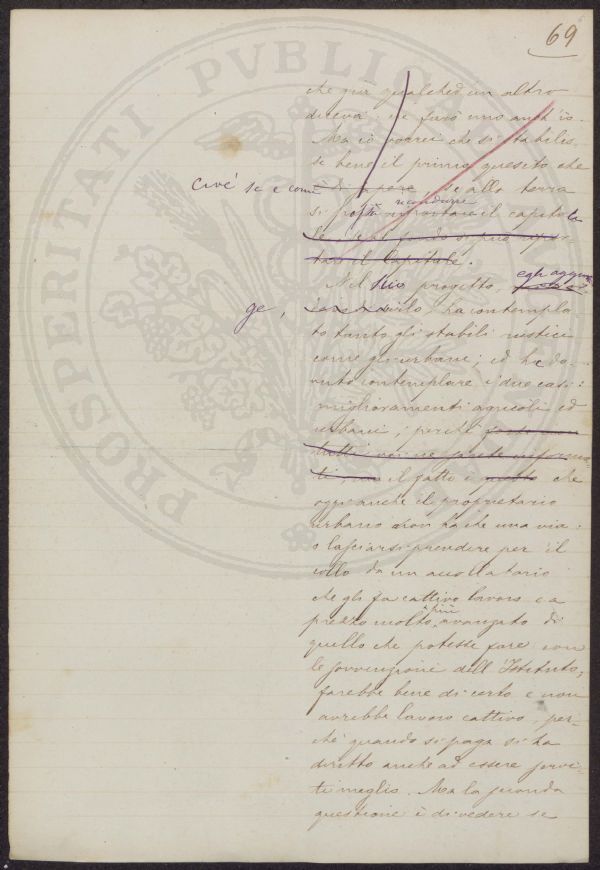 69
PROSPERITATI PVBLICAE
che già qualched'un altro
diceva: ne farò uno anch'io.
Ma io vorrei che si stabilis-
se bene il primo quesito che
cioè se e come
è di sapere se alla terra
ricondurre
si possa riportare il capita
le
tare il Capitale.
Nel mio progetto, egli aggiun
ge, ha contempla-
to tanto gli stabili rustici
come gli urbani; ed ha do-
vuto contemplare i due casi:
miglioramenti agricoli ed
urbani; perchè
tutti voi ne siete informa-
ti, ma il fatto è questo che
oggi anche il proprietario
urbano non ha che una via:
o lasciarsi prendere per il
collo da un accollatario
che gli fa cattivo lavoro e a
più
prezzo molto avanzato di
quello che potesse fare con
le sovvenzioni dell'Istituto,
farebbe bene di certo e non
avrebbe lavoro cattivo, per-
chè quando si paga si ha
diritto anche ad essere servi-
ti meglio. Ma la seconda
questione è di vedere se